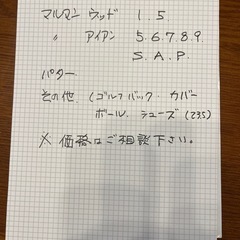 マルマン ウッド 1. 5.
〃 アイアン 5. 6. 7. 8. 9.
S. A. P.
パター
その他. (ゴルフバック. カバー
ボール. シューズ (23.5)
※ 価格はご相談下さい。